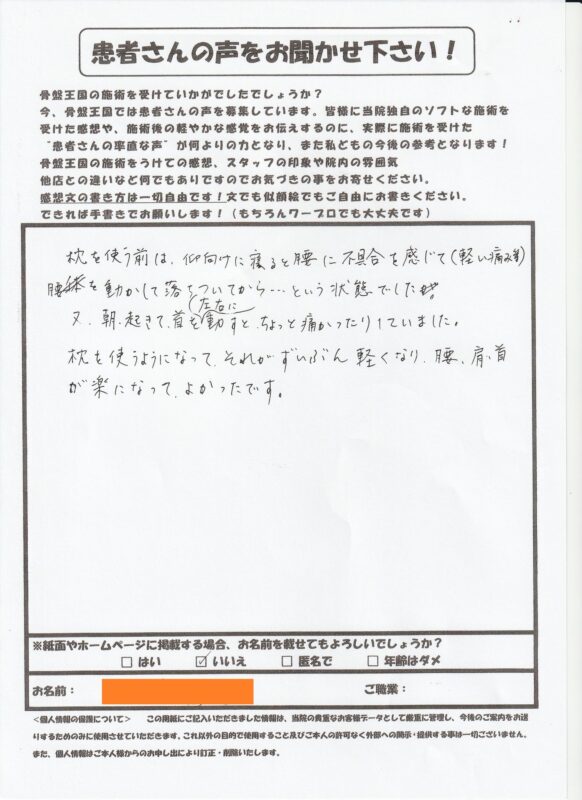 患者さんの声をお聞かせ下さい！
骨盤王国の施術を受けていかがでしたでしょうか？
今、骨盤王国では患者さんの声を募集しています。皆様に当院独自のソフトな施術を
受けた感想や、施術後の軽やかな感覚をお伝えするのに、実際に施術を受けた
“患者さんの率直な声”が何よりの力となり、また私どもの今後の参考となります！
骨盤王国の施術をうけての感想、スタッフの印象や院内の雰囲気
他店との違いなど何でもありですのでお気づきの事をお寄せください。
感想文の書き方は一切自由です！文でも似顔絵でもご自由にお書きください。
できれば手書きでお願いします！（もちろんワープロでも大丈夫です）
枕を使う前は、仰向けに寝ると腰に不具合を感じて（軽い痛み等）
腰を動かして落ちついてから…という状態でした
又、朝、起きて、首を左右に動すと、ちょっと痛かったりしていました。
枕を使うようになって、それがずいぶん軽くなり、腰、肩、首
が楽になって、よかったです。
※紙面やホームページに掲載する場合、お名前を載せてもよろしいでしょうか？
□はい ☑いいえ □匿名で □年齢はダメ
お名前： ご職業：
＜個人情報の保護について＞ この用紙にご記入いただきました情報は、当院の貴重なお客様データとして厳重に管理し、今後のご案内をお送
りするためのみに使用させていただきます。これ以外の目的で使用すること及びご本人の許可なく外部への開示・提供する事は一切ございません。
また、個人情報はご本人様からのお申し出により訂正・削除いたします。